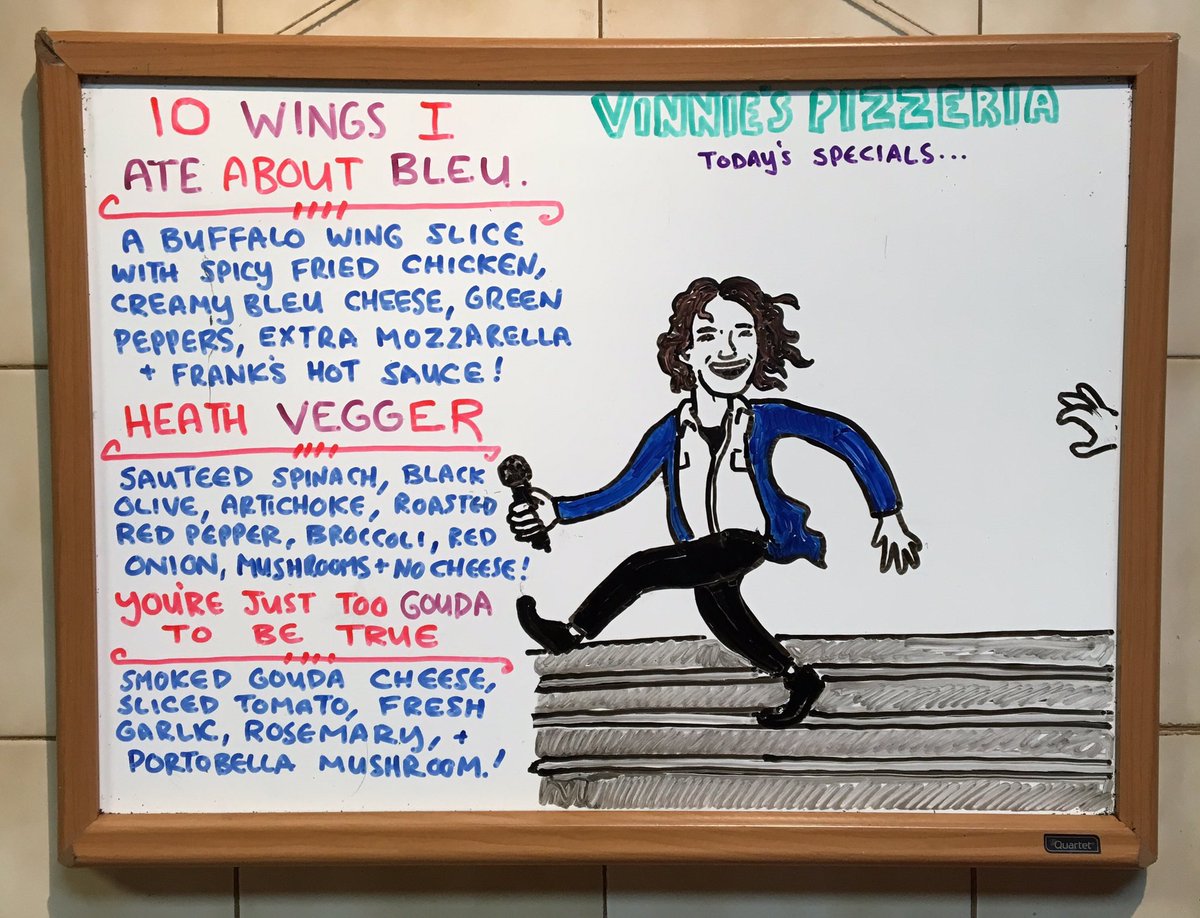 10 WINGS I
ATE ABOUT BLEU.
A BUFFALO WING SLICE
WITH SPICY FRIED CHICKEN,
CREAMY BLEU CHEESE, GREEN
PEPPERS, EXTRA MOZZARELLA
+ FRANK'S HOT SAUCE!
HEATH VEGGER
SAUTEED SPINACH, BLACK
OLIVE, ARTICHOKE, ROASTED
RED PEPPER, BROCCOLI, RED
ONION, MUSHROOMS + NO CHEESE!
YOU'RE JUST TOO GOUDA
TO BE TRUE
SMOKED GOUDA CHEESE,
SLICED TOMATO, FRESH
GARLIC, ROSEMARY, +
PORTOBELLA MUSHROOM.!
VINNIE'S PIZZERIA
TODAY'S SPECIALS...
Quartet